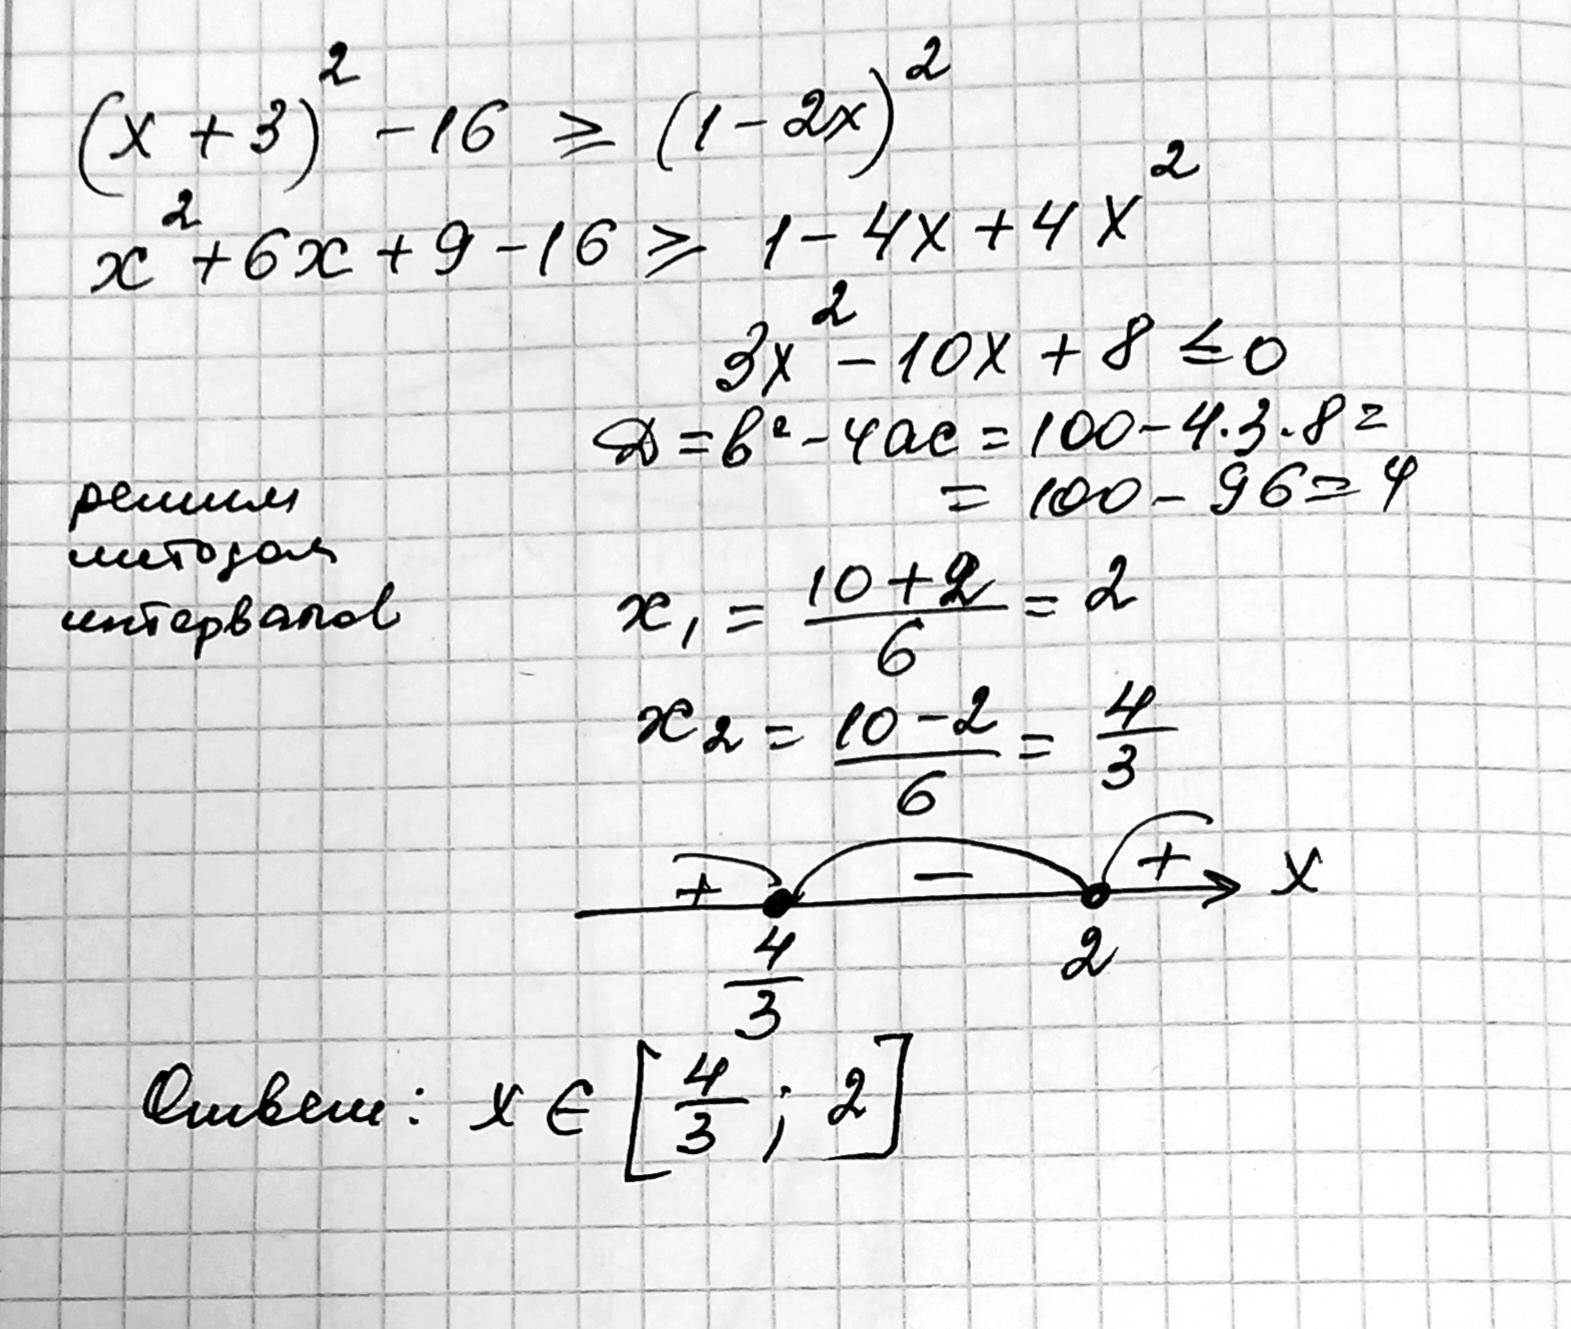 (x + 3)² - 16 ⩾ (1 - 2x)²
x² + 6x + 9 - 16 ⩾ 1 - 4x + 4x²
3x² - 10x + 8 ≤ 0
D = b² - 4ac = 100 - 4·3·8 =
= 100 - 96 = 4
решим
методом
интервалов
x₁ = (10 + 2)/6 = 2
x₂ = (10 - 2)/6 = 4/3
+ − + x
4/3 2
Ответ: x ∈ [4/3; 2]